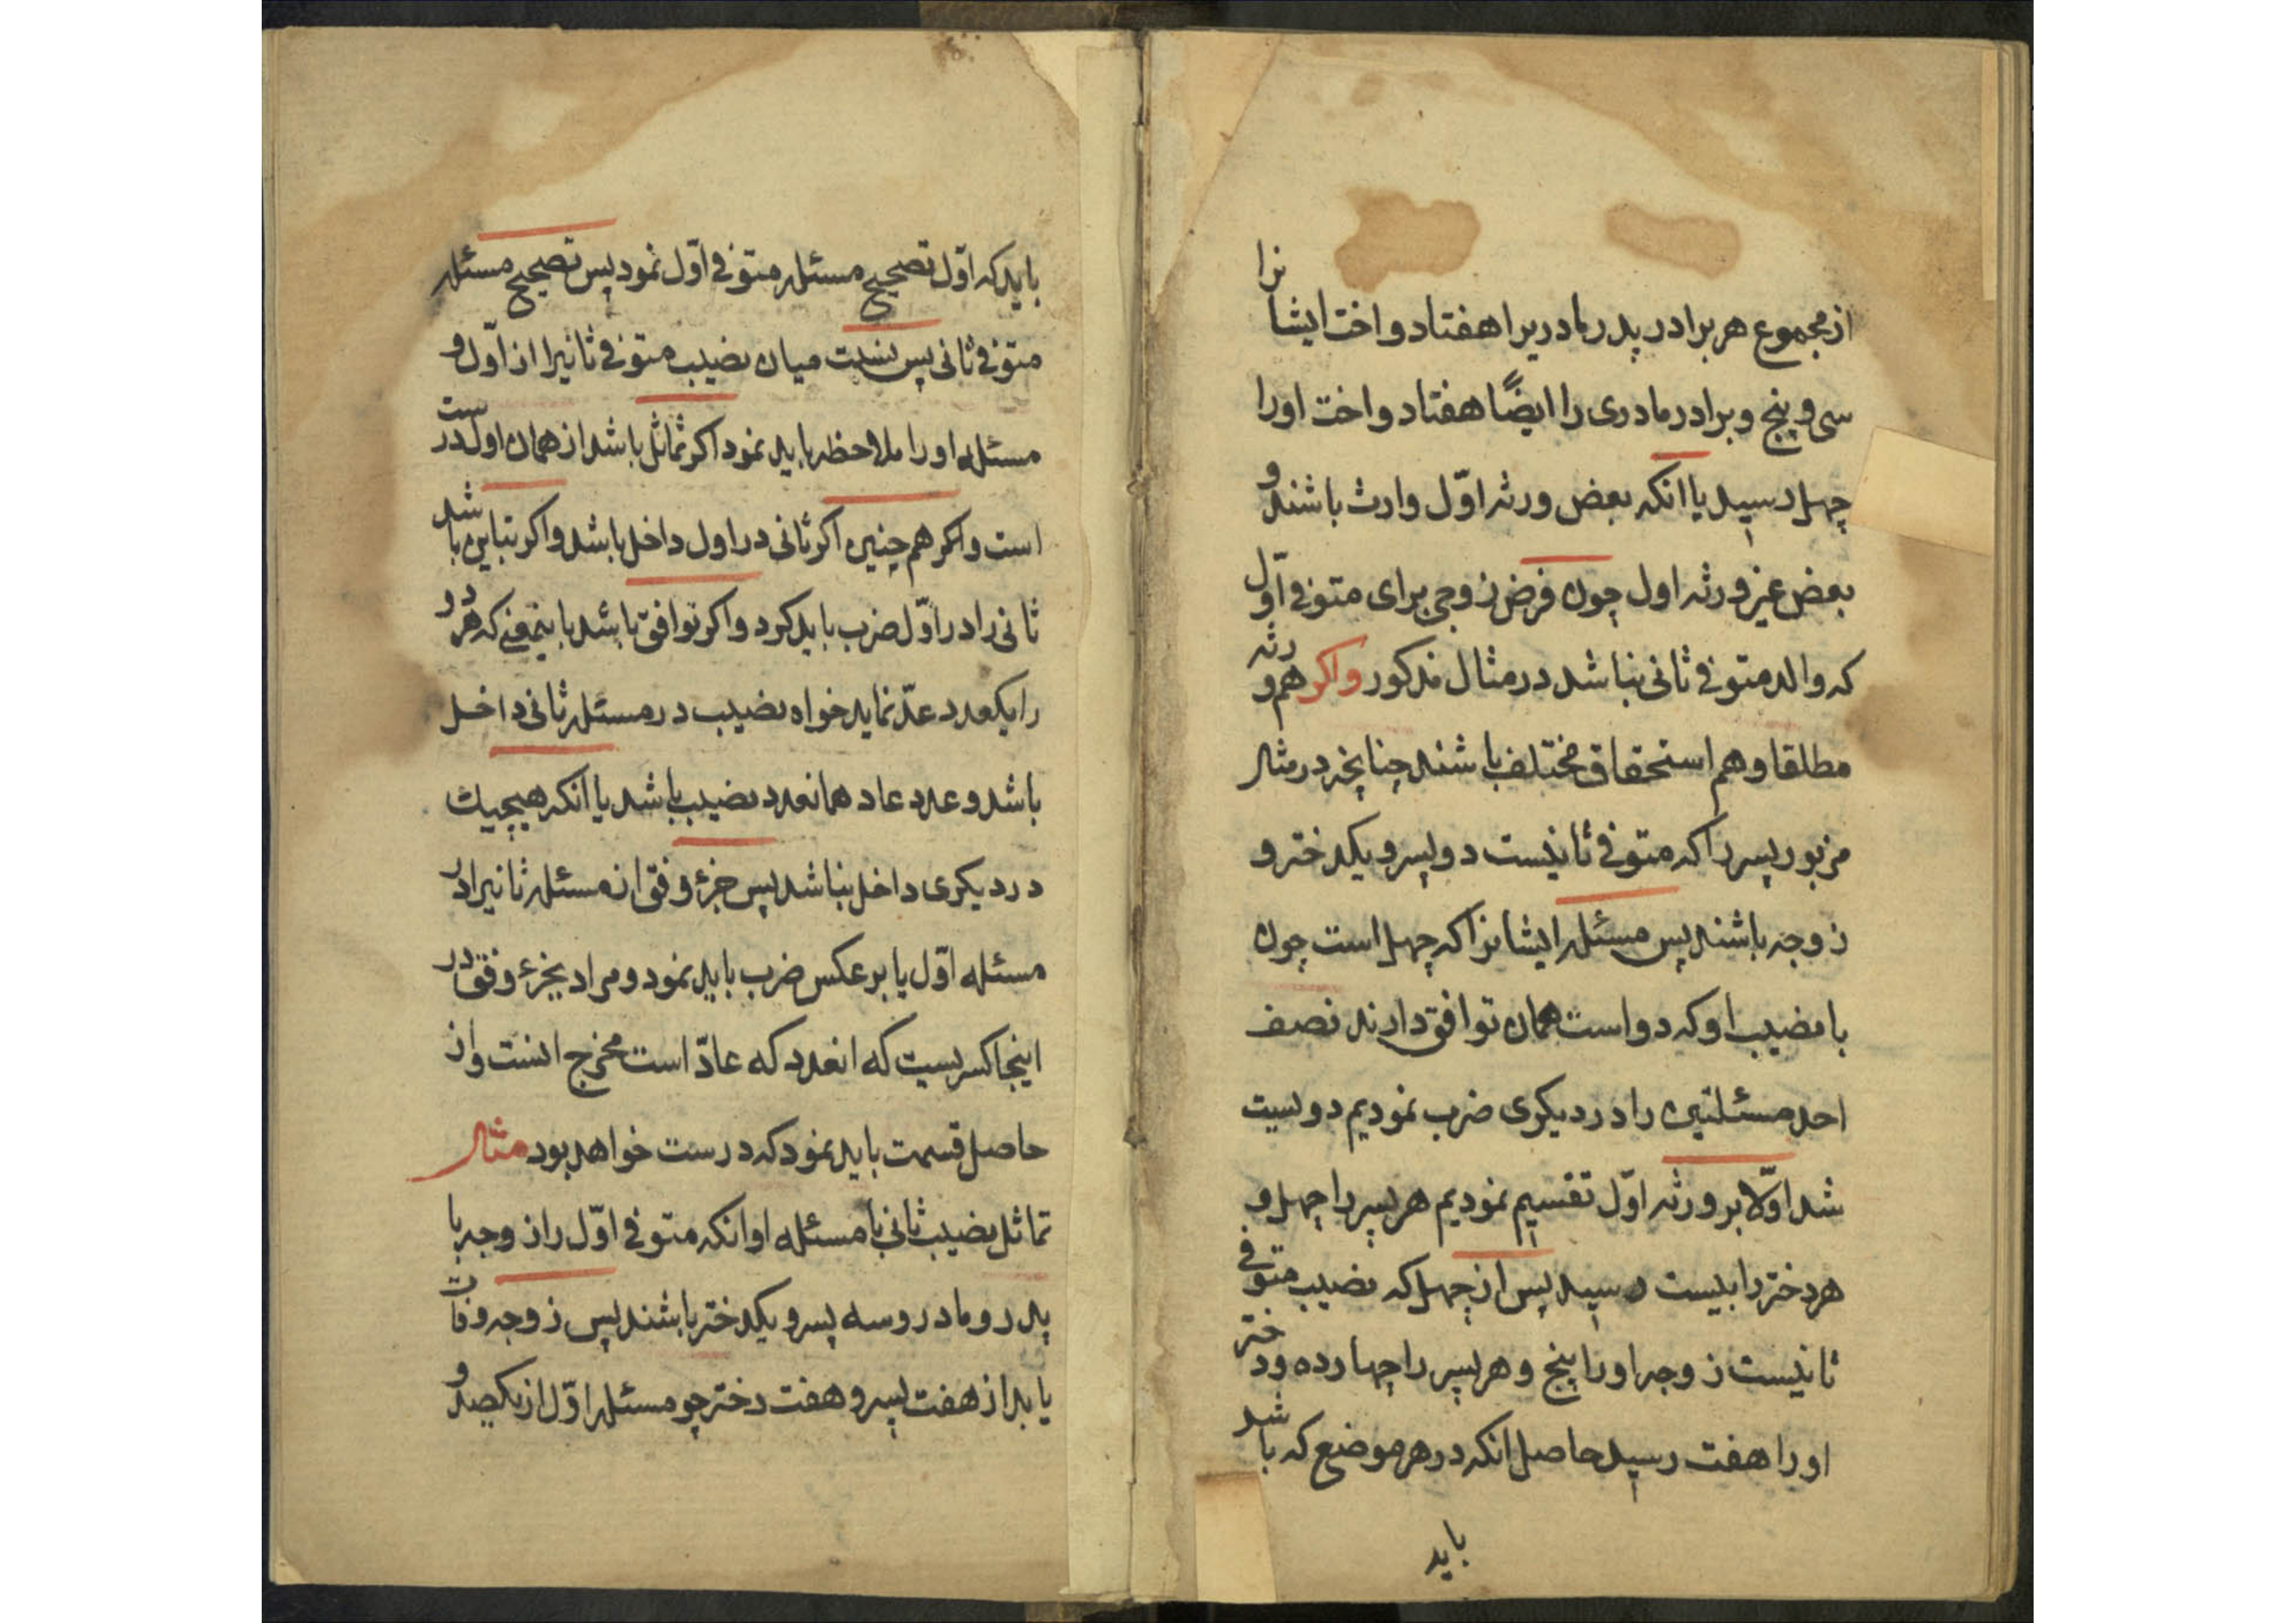 از مجموع هر برادر پدر مادریرا هفتاد و اخت ایشانرا
سی و پنج و برادر مادری را ایضًا هفتاد و اخت او را
چهل رسید یا انکه بعض ورثه اوّل وارث باشند و
بعض غیر ورثه اول چون فرض زوجی برای متوفی اوّل
که والد متوفی ثانی نباشد در مثال مذکور واکر هم ورثه
مطلقا و هم استحقاق مختلف باشند چنانچه در مثال
مزبور پسر را که متوفی ثانیست دو پسر و یکدختر و
زوجه باشند پس مسئله ایشانرا که چهل است چون
با نصیب او که دو است همان توافق دارند نصف
احد مسئلتین را در دیکری ضرب نمودیم دویست
شد اوّلا بر ورثه اوّل تقسیم نمودیم هر پسر را چهل و
هر دختر را بیست رسید پس از چهل که نصیب متوفی
ثانیست زوجه او را پنج و هر پسر را چهارده و دختر
او را هفت رسید حاصل انکه در هر موضع که باشد
باید
باید که اوّل تصحیح مسئله متوفی اوّل نمود پس تصحیح مسئله
متوفی ثانی پس نسبت میان نصیب متوفی ثانیرا از اوّل و
مسئله او را ملاحظه باید نمود اکر تماثل باشد از همان اول درست
است و اکر هم چنین اکر ثانی در اول داخل باشد و اکر تباین باشد
ثانی را در اوّل ضرب باید کرد و اکر توافق باشد باینمعنی که هر دو
را یکعدد عدّ نماید خواه نصیب در مسئله ثانی داخل
باشد و عدد عاد همانعدد نصیب باشد یا انکه هیچیك
در دیکری داخل نباشد پس جزء وفق از مسئله ثانیرا در
مسئله اوّل یا بر عکس ضرب باید نمود و مراد بجزء وفق در
اینجا کسریست که انعدد که عادّ است مخرج انست و از
حاصل قسمت باید نمود که درست خواهد بود مثال
تماثل نصیب ثانی با مسئله او انکه متوفی اوّل را زوجه با
پدر و مادر و سه پسر و یکدختر باشند پس زوجه وفات
یابد از هفت پسر و هفت دختر چو مسئله اوّل از یکصد و